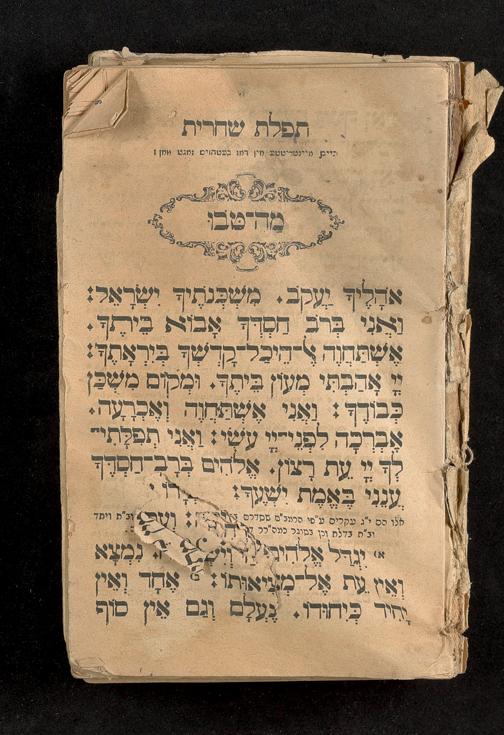 תפלת שחרית
מַה־טֹּבוּ
אֹהָלֶיךָ יַעֲקֹב. מִשְׁכְּנֹתֶיךָ יִשְׂרָאֵל:
וַאֲנִי בְּרֹב חַסְדְּךָ אָבוֹא בֵיתֶךָ.
אֶשְׁתַּחֲוֶה אֶל־הֵיכַל־קָדְשְׁךָ בְּיִרְאָתֶךָ:
יְיָ אָהַבְתִּי מְעוֹן בֵּיתֶךָ. וּמְקוֹם מִשְׁכַּן
כְּבוֹדֶךָ: וַאֲנִי אֶשְׁתַּחֲוֶה וְאֶכְרָעָה.
אֶבְרְכָה לִפְנֵי־יְיָ עֹשִׂי: וַאֲנִי תְפִלָּתִי־
לְךָ יְיָ עֵת רָצוֹן. אֱלֹהִים בְּרָב־חַסְדֶּךָ
עֲנֵנִי בֶּאֱמֶת יִשְׁעֶךָ:
אלו הם י״ג עקרים ע״פי הרמב״ם
א) יִגְדַּל אֱלֹהִים נִמְצָא
וְאֵין עֵת אֶל־מְצִיאוּתוֹ: אֶחָד וְאֵין
יָחִיד כְּיִחוּדוֹ. נֶעְלָם וְגַם אֵין סוֹף